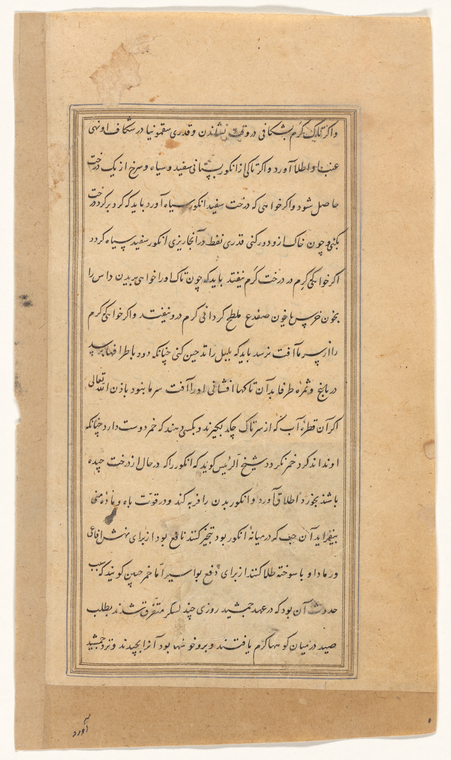 واکر تاک کرم بشکافی در وقت نشاندن و قدری سقمونیا در شکاف او نهی
عنب او اطلاق آورد واکر تاکی از انکور بستانی سفید و سیاه و سرخ از یک درخت
حاصل شود واکر خواهی که درخت سفید انکور سیاه آورد باید که کرد بر کرد درخت
بکنی و چون خاک ازو دور کنی قدری نفط در آنجا ریزی انکور سفید سیاه کردد
اکر خواهی کی کرم در درخت کرم نیفتد باید که چون تاک او را خواهی بریدن داس را
بخون خرس یا بخون ضفدع ملطخ کردانی کرم درو نیفتد واکر خواهی کی کرم
را از سرما آفت نرسد باید که
در باغ و ثمره طرفا بدآن تاکها افشانی او را آفت سرما نبود باذن الله تعالی
اکر آن قطرهٔ آب که از سر تاک چکد بکیرند و بکسی دهند که خمر دوست دارد چنانکه
او نداند کرد خمر نکردد شیخ الرئیس کوید که انکور را که در حال از درخت چیده
باشند بخورد اطلاق آورد و انکور بدن را فربه کند و در قوت باه و مادهٔ منی
بیفزاید آن حب که در میانه انکور بود نافع بود از برای نهش افاعی
و رماد او با سوخته طلا کنند از برای دفع بواسیر اما خمر چنین کویند که سبب
حدوث آن بود که در عهد جمشید روزی چند لشکر متفرق شدند بطلب
صید در میان کوهها کرم یافتند و برو خوشها بود آنرا بچیدند و نزد جمشید
آورد